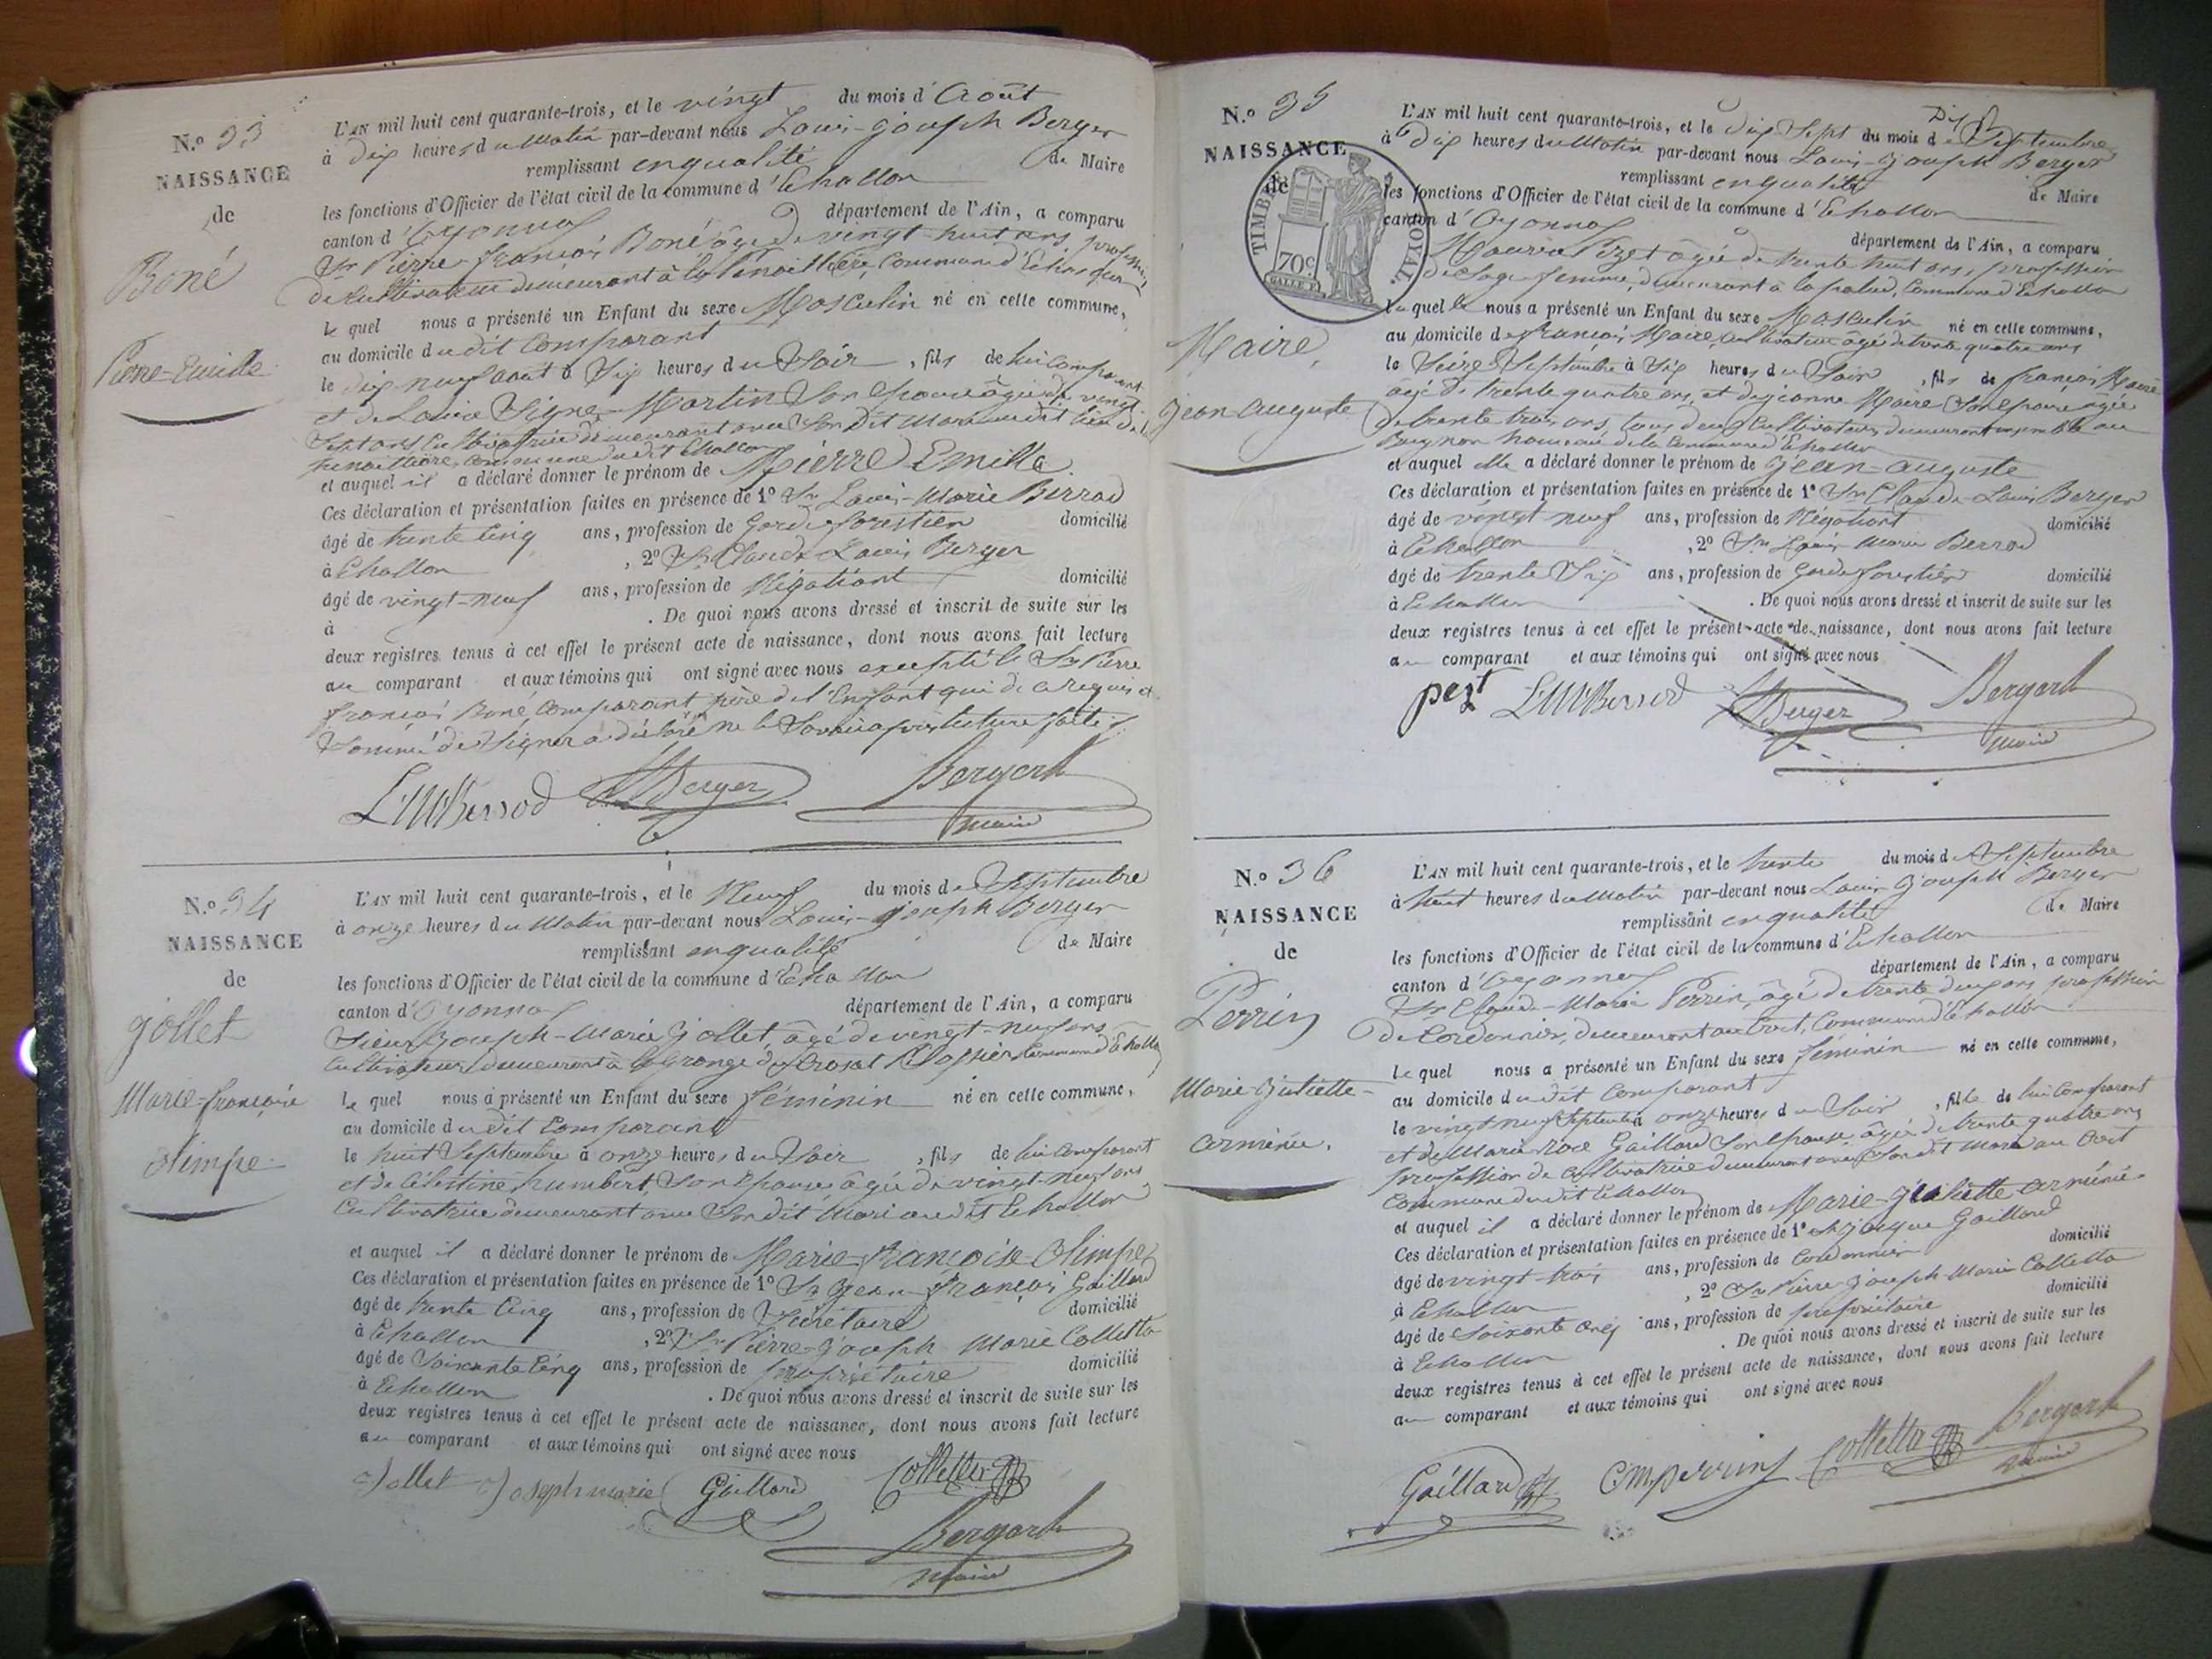 N.o 33
NAISSANCE
de
Boné
Pierre-Emille
L'AN mil huit cent quarante-trois, et le vingt du mois d'Août
à dix heures du Matin par-devant nous Louis-Joseph Berger
remplissant en qualité de Maire
les fonctions d'Officier de l'état civil de la commune d'Echallon
canton d'Oyonnax département de l'Ain, a comparu
Sr Pierre-François Boné âgé de vingt-huit ans, profession
de Cultivateur demeurant à la commune d'Echallon
le quel nous a présenté un Enfant du sexe Masculin né en cette commune,
au domicile du dit Comparant
le dix neuf août à Six heures du Soir, fils de lui Comparant
et de Louise Martin Son Epouse âgée de vingt
Sept ans, Cultivatrice demeurant avec Son dit Mari
commune du dit Echallon
et auquel il a déclaré donner le prénom de Pierre Emille
Ces déclaration et présentation faites en présence de 1o Sr Louis-Marie Berrod
âgé de trente Cinq ans, profession de Garde forestier domicilié
à Echallon, 2o Sr Claude Louis Berger
âgé de vingt-neuf ans, profession de Négotiant domicilié
à . De quoi nous avons dressé et inscrit de suite sur les
deux registres tenus à cet effet le présent acte de naissance, dont nous avons fait lecture
au comparant et aux témoins qui ont signé avec nous excepté le Sr Pierre
françois Boné Comparant père de l'Enfant qui de ce requis et
Sommé de Signer a déclaré ne le Savoir après lecture faite
LMBerrod Berger Berger
maire
N.o 34
NAISSANCE
de
Jollet
Marie-françoise
Olimpe
L'AN mil huit cent quarante-trois, et le Neuf du mois de Septembre
à onze heures du Matin par-devant nous Louis-Joseph Berger
remplissant en qualité de Maire
les fonctions d'Officier de l'état civil de la commune d'Echallon
canton d'Oyonnax département de l'Ain, a comparu
Sieur Joseph-Marie Jollet, âgé de vingt-neuf ans
Cultivateur demeurant à la Grange du Crosat Commune d'Echallon
le quel nous a présenté un Enfant du sexe féminin né en cette commune,
au domicile du dit Comparant
le huit Septembre à onze heures du Soir, fils de lui Comparant
et de Célestine humbert, Son Epouse âgée de vingt-neuf ans
Cultivatrice demeurant avec Son dit Mari au dit Echallon
et auquel il a déclaré donner le prénom de Marie-françoise-Olimpe
Ces déclaration et présentation faites en présence de 1o Sr Jean-françois Gaillard
âgé de trente Cinq ans, profession de Secrétaire domicilié
à Echallon, 2o Sr Pierre-Joseph Marie Colletta
âgé de Soixante Cinq ans, profession de propriétaire domicilié
à Echallon . De quoi nous avons dressé et inscrit de suite sur les
deux registres tenus à cet effet le présent acte de naissance, dont nous avons fait lecture
au comparant et aux témoins qui ont signé avec nous
Jollet Joseph marie Gaillard Colletta
Berger
maire
N.o 35
NAISSANCE
de
TIMBRE ROYAL
70c
Maire,
Jean Auguste
L'AN mil huit cent quarante-trois, et le dix Sept du mois de Septembre
à Dix heures du Matin par-devant nous Louis-Joseph Berger
remplissant en qualité de Maire
les fonctions d'Officier de l'état civil de la commune d'Echallon
canton d'Oyonnax département de l'Ain, a comparu
âgée de trente huit ans, profession
de Sage-femme, demeurant à la palud, Commune d'Echallon
la quelle nous a présenté un Enfant du sexe Masculin né en cette commune,
au domicile de françois Maire, Cultivateur âgé de trente quatre ans
le Seize Septembre à Six heures du Soir, fils de françois Maire
âgé de trente quatre ans, et de jeanne Maire Son Epouse âgée
de trente trois ans, tous deux Cultivateurs demeurant ensemble au
hameau de la Commune d'Echallon
et auquel elle a déclaré donner le prénom de Jean-Auguste
Ces déclaration et présentation faites en présence de 1o Sr Claude-Louis Berger
âgé de vingt neuf ans, profession de Négotiant domicilié
à Echallon, 2o Sr Louis Marie Berrod
âgé de trente Six ans, profession de Garde forestier domicilié
à Echallon . De quoi nous avons dressé et inscrit de suite sur les
deux registres tenus à cet effet le présent acte de naissance, dont nous avons fait lecture
au comparant et aux témoins qui ont signé avec nous
LMBerrod Berger Berger
maire
N.o 36
NAISSANCE
de
Perrin
Marie-Juliette-
arménie.
L'AN mil huit cent quarante-trois, et le trente du mois de Septembre
à huit heures du Matin par-devant nous Louis Joseph Berger
remplissant en qualité de Maire
les fonctions d'Officier de l'état civil de la commune d'Echallon
canton d'Oyonnax département de l'Ain, a comparu
Sr Claude-Marie Perrin, âgé de trente deux ans profession
de Cordonnier, demeurant au Crêt, Commune d'Echallon
le quel nous a présenté un Enfant du sexe féminin né en cette commune,
au domicile du dit Comparant
le vingt neuf Septembre à onze heures du Soir, fille de lui Comparant
et de Marie-Rose Gaillard Son Epouse, âgée de trente quatre ans
profession de Cultivatrice demeurant avec Son dit Mari au Crêt
Commune du dit Echallon
et auquel il a déclaré donner le prénom de Marie-Juliette arménie-
Ces déclaration et présentation faites en présence de 1o Sr jacques Gaillard
âgé de vingt-trois ans, profession de Cordonnier domicilié
à Echallon, 2o Sr Pierre-Joseph-Marie Colletta
âgé de Soixante Cinq ans, profession de propriétaire domicilié
à Echallon . De quoi nous avons dressé et inscrit de suite sur les
deux registres tenus à cet effet le présent acte de naissance, dont nous avons fait lecture
au comparant et aux témoins qui ont signé avec nous
Gaillard CMperrin Colletta Berger
maire